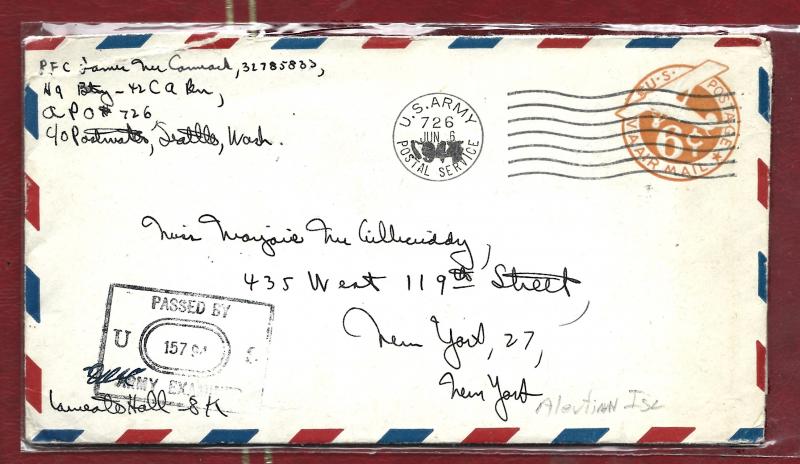 PFC James McCormack, 32785833,
Hq Btry - 42 CA Bn,
APO # 726
C/O Postmaster, Seattle, Wash.
U.S. ARMY
726
JUN 6
1944
POSTAL SERVICE
U.S. POSTAGE
6¢
VIA AIR MAIL
Miss Marjorie Mc
435 West 119th Street,
New York, 27,
New York
PASSED BY
U S
ARMY EXAMINER
Hall - 8K
Aleutian Isl